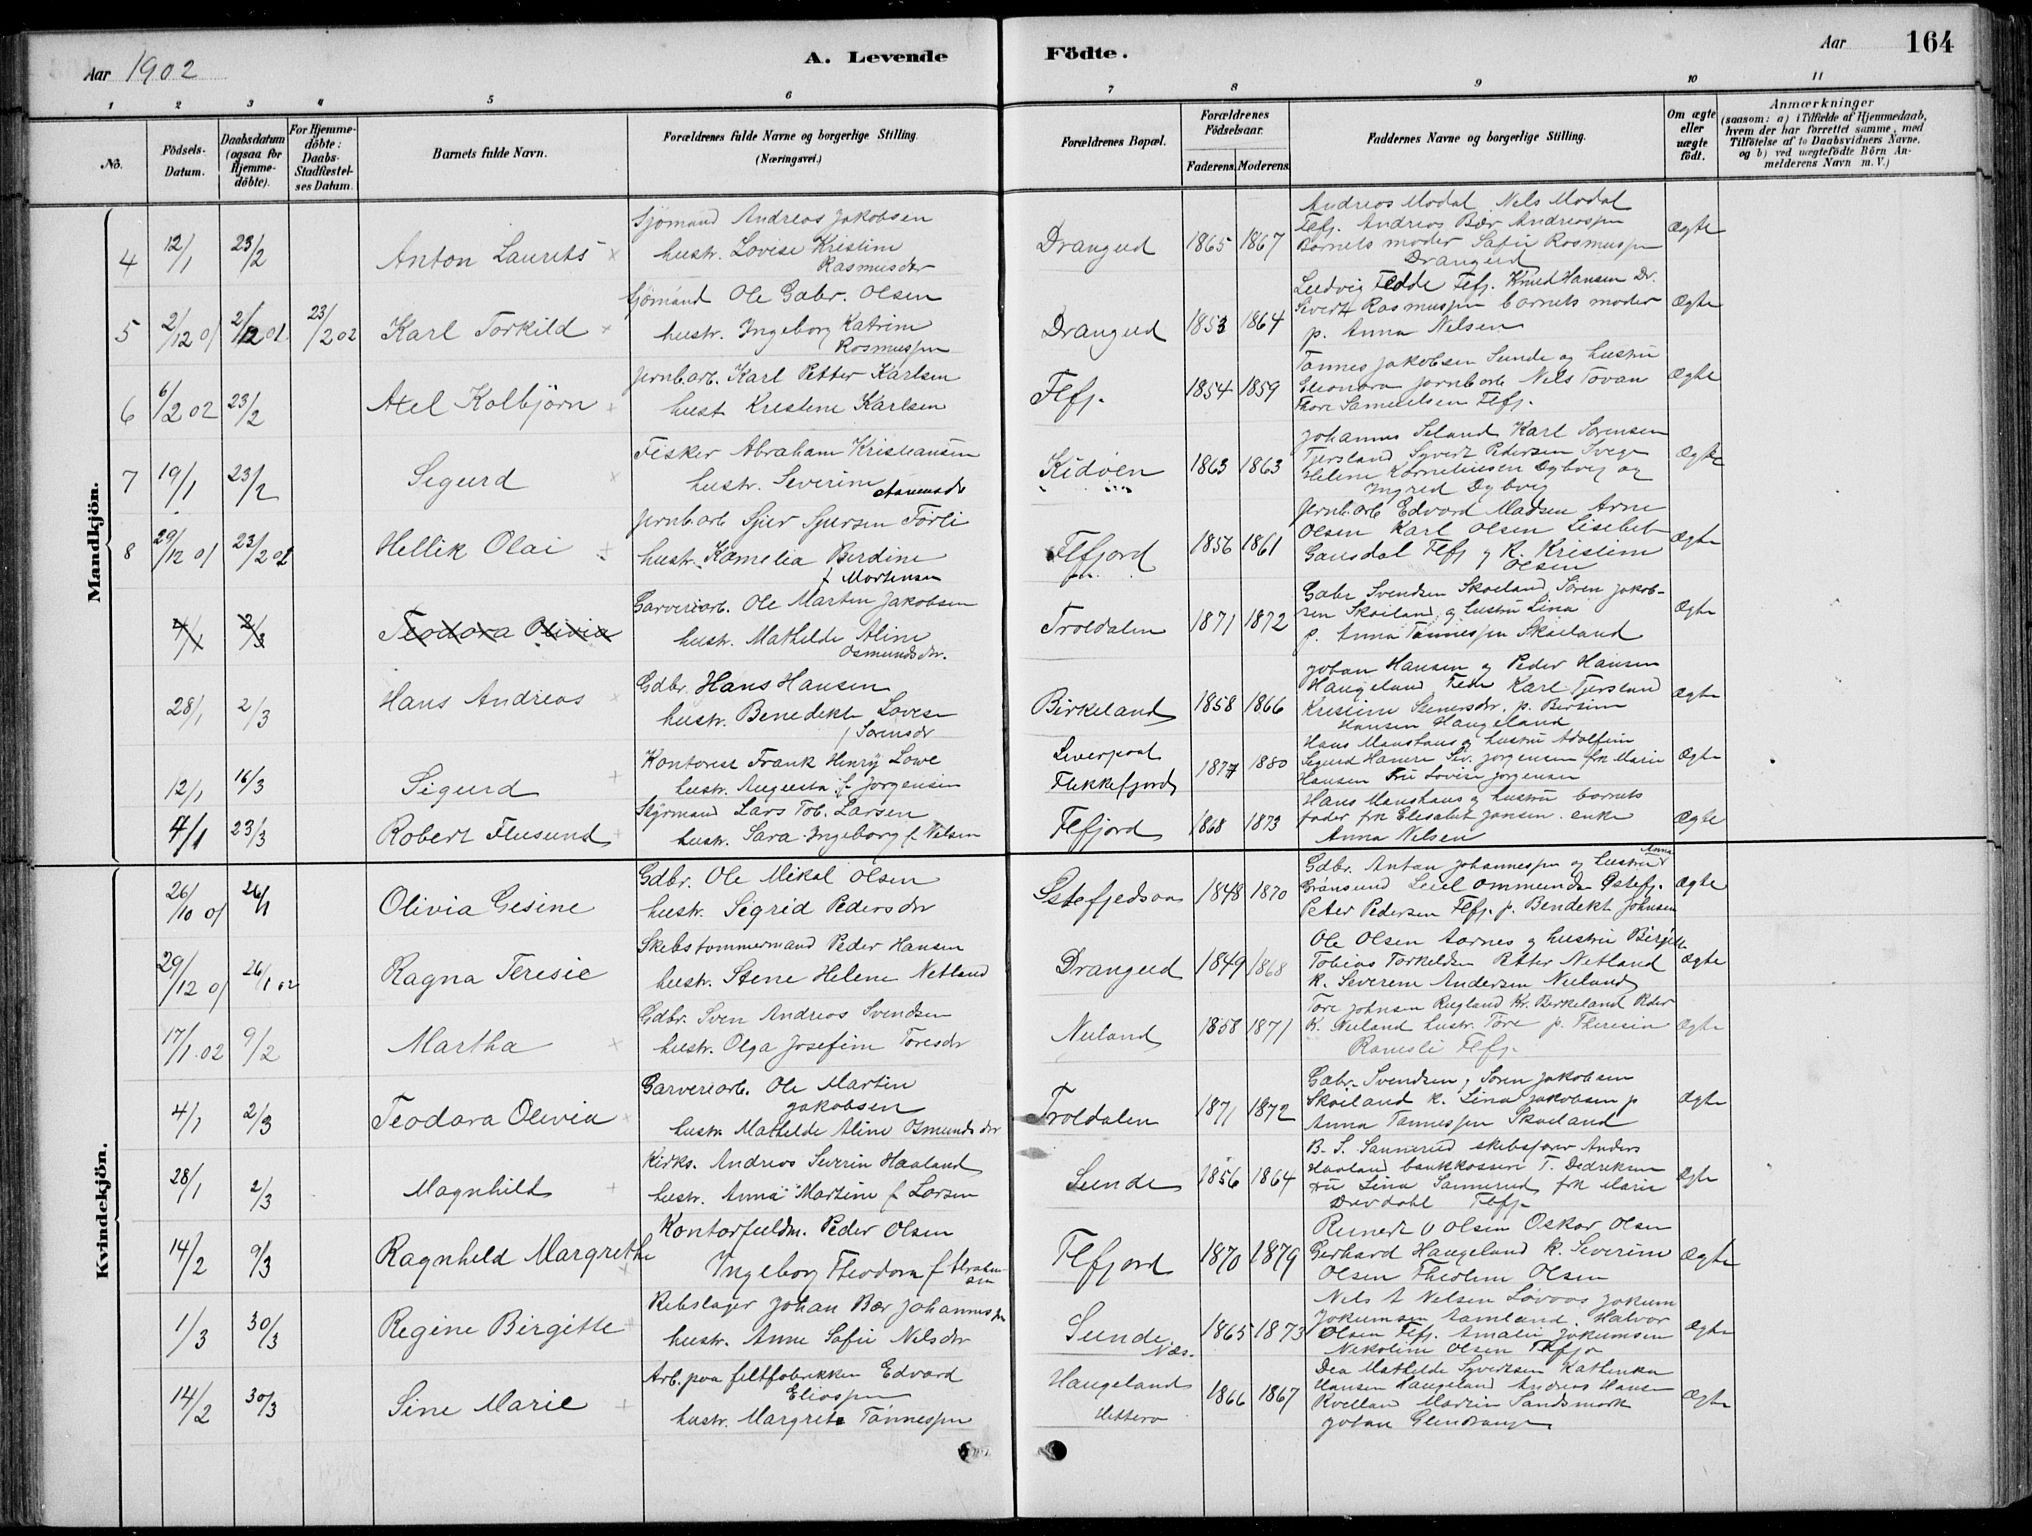 Aar 1902
A. Levende
Födte.
Aar 164
1 2 3 4 5 6 7 8 9 10 11
Nò.
Födsels-Datum.
Daabsdatum (ogsaa for Hjemme-döbte).
For Hjemme-döbte: Daabs-Stadfæstel-ses Datum.
Barnets fulde Navn.
Forældrenes fulde Navne og borgerlige Stilling.
(Næringsvei.)
Forældrenes Bopæl.
Forældrenes Födselsaar.
Faderens. Moderens.
Faddernes Navne og borgerlige Stilling.
Om ægte eller uægte födt.
Anmærkninger
(saasom: a) i Tilfælde af Hjemmedaab,
hvem der har forrettet samme, med
Tilföielse af to Daabsvidners Navne,
og b) ved uægtefödte Börn An-
melderens Navn m. V.)
Mandkjön.
4 12/1 23/2 Anton Laurits
Sjömand Andreas Jakobsen
hustr. Lovise Kristine
Rasmusdtr
Drangeid 1865 1867
Andreas Modal Nels Modal
Flfj. Andreas Bær Andreassen
Barnets moder Safie Rasmussen
Drangeid
Ægte
5 2/12 01 2/12 01 23/2 02 Karl Torkild
Sjömand Ole Gabr. Olsen
hustr. Ingeborg Katrine
Rasmussen
Drangeid 1853 1864
Ludvig Fedde Flfj. Knud Hansen Dr.
Sivert Rasmussen barnets moder
p. Anna Nelsen
Ægte
6 6/2 02 23/2 Axel Kolbjörn
Jernb.arb. Karl Petter Karlsen
hust Kristine Karlsen
Flfj. 1854 1859
Tönnes Jakobsen Sunde og hustru
Eleonora Jernbarb Nels Tovan
Thore Samuelsen Flfj.
Ægte
7 19/1 23/2 Sigurd
Fisker Abraham Kristiansen
hustr. Severine
Kidöen 1863 1863
Johannes Seland Karl Sörensen
Tjersland Syvert Pedersen Svege
Helene Korneliussen Dybvig og
Ingred Dybvig
Ægte
8 29/12 01 23/2 02 Hellik Olai
Jernb.arb Sjur Sjursen Förli
hustr. Kornelia Berdine
f Mortensen
Flfjord 1856 1861
Jernb.arb Edvard Madsen Arne
Olsen Karl Olsen Lisebet
Gausdal Flfj og K. Kristine
Olsen
Ægte
4/1 2/3 Teodora Olivia
Garveriarb. Ole Marten Jakobsen
hustr. Mathilde Aline
Osmundsdtr.
Troldalen 1871 1872
Gabr Svendsen Skoeland Sören Jakob-
sen Skoiland og hustru Lina
p. Anna Tönnessen Skoeland
Ægte
28/1 2/3 Hans Andreas
Gdbr. Hans Hansen
hustr. Benedikte Lovise
f Sörensdtr
Birkeland 1858 1866
Johan Hansen og Peder Hansen
Haugeland Karl Tjersland
Kristine p. Bersine
Hansen Haugeland
Ægte
12/1 16/3 Sigurd
Kontorist Frank Henry Lowe
hustr. Augusta f. Jörgensen
Liverpool
Flekkefjord 1877 1880
Hans Manshaus og hustru Adolfine
Sigurd Hamre Siv. Jörgensen frk Marie
Hansen Fru Lovise Jörgensen
Ægte
4/1 23/3 Robert Flusund
Styrmand Lars Tob. Larsen
hustr. Sara Ingeborg f. Nelsen
Flfjord 1868 1873
Hans Manshaus og hustru barnets
fader frk Elisabet Jansen. enke
Anna Nelsen
Ægte
Kvindekjön.
26/10 01 26/1 Olivia Gesine
Gdbr. Ole Mikal Olsen
hustr. Sigrid Pedersdtr
1848 1870
Gdbr. Antan Johannessen og hustru Anna
Grönsund Leiel Ommundsen Östefj.
Peter Pedersen Flfj. p. Bendekte Johnsen
Ægte
29/12 01 26/1 02 Ragna Teresie
Skibstömmermand Peder Hansen
hustr. Stene Helene Netland
Drangeid 1849 1868
Ole Olsen Aarnes og hustru Birgitte
Tobias Torkeldsen Petter Netland
K. Severine Andersen Nuland
Ægte
17/1 02 9/2 Martha
Gdbr. Sven Andreas Svendsen
hustr. Olga Josefine Toresdtr
Nuland 1858 1871
Tore Johnsen Rugland Kr. Berkeland Peder
K. Nuland hustr. Tore p. Theresia
Flfj.
Ægte
4/1 2/3 Teodora Olivia
Garveriarb. Ole Marten
Jakobsen
hustr Mathilde Aline Osmundsdtr
Troldalen 1871 1872
Gabr. Svendsen, Sören Jakobsen
Skoiland k. Lina Jakobsen p
Anna Tönnessen Skoeland
Ægte
28/1 2/3 Magnhild
Kirks. Andreas Severin Haaland
hustr. Anna Martine f Larsen
Sunde 1856 1864
B. S. Sannerud skibsförer Anders
Haaland bankkasserer T. Dedriksen
fru Lina Sannerud frk Marie
Drevdahl Flfj.
Ægte
14/2 9/3 Ragnheld Margrethe
Kontorfuldm. Peder Olsen
Ingeborg Theodora f Abraham-
sen
Flfjord 1870 1879
Reinert O Olsen Oskar Olsen
Gerhard Haugeland k. Severine
Olsen Theoline Olsen
Ægte
1/3 30/3 Regine Birgitte
Rebslager Johan Bær Johannessen
hustr. Anne Safie Nilsdtr
Sunde
Næs. 1865 1873
Nels A Nelsen Lövaas Jokum
Jokumsen Aamland. Halvor
Olsen Flfj. Amalie Jokumsen
Nikoline Olsen Flfj
Ægte
14/2 30/3 Sine Marie
Arb. paa filtfabrikken Edvard
Eliassen
hustr. Margrete Tönnessen
Haugeland
Hetterø 1866 1867
Dea Mathilde Syvertsen Kathinka
Hansen Haugeland Andreas Hansen
Kvellan Martin Sandsmark
Johan Glendrange
Ægte